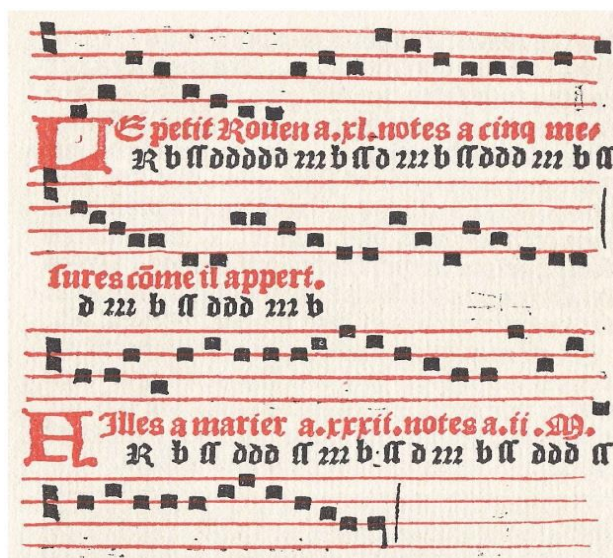 LE petit Rouen a.xl.notes a cinq me⸗
R b ſſ ddddd ꝛꝛꝛ b ſſ d ꝛꝛꝛ b ſſ ddd ꝛꝛꝛ b ſſ
ſures cõme il appert.
d ꝛꝛꝛ b ſſ ddd ꝛꝛꝛ b
FIlles a marier a.xxxii.notes a.ii.M.
R b ſſ ddd ſſ ꝛꝛꝛ b ſſ d ꝛꝛꝛ b ſſ ddd ſſ